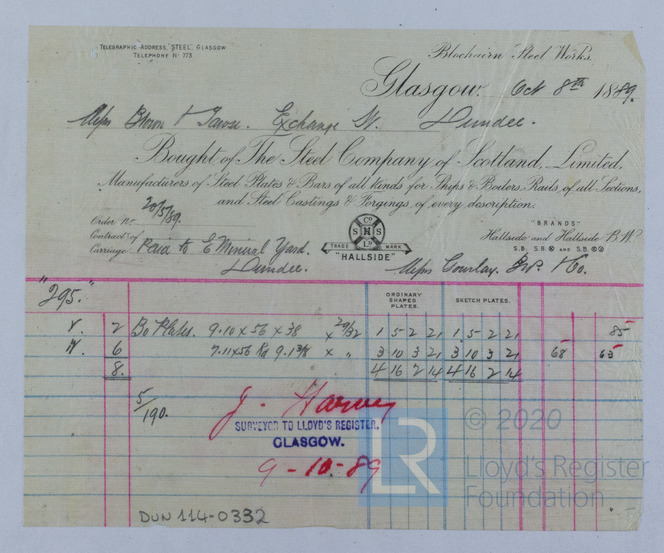 TELEGRAPHIC ADDRESS, "STEEL" GLASGOW
TELEPHONE No 773
Blochairn Steel Works.
Glasgow. Oct 8th 1889.
Messrs Brown & Tawse. Exchange St. Dundee.
Bought of The Steel Company of Scotland, Limited,
Manufacturers of Steel Plates & Bars of all kinds for Ships & Boilers, Rails, of all Sections,
and Steel Castings & Forgings, of every description.
Order No
Contract of 20/5/89.
Carriage Paid to E Mineral Yard.
Dundee.
Co
S H S
N
LD
TRADE MARK
"HALLSIDE"
"BRANDS"
Hallside and Hallside B.W
Messrs Gourlay. Bros & Co.
"295."
ORDINARY SHAPES PLATES.
SKETCH PLATES.
V. 2 Bo Plates. 9.10 x 56 x 38 x 29/32 1 5 2 21 1 5 2 21 85
6 3 10 3 21 3 10 3 21 68 65
8. 4 16 2 14 4 16 2 14
5/190.
J. Harvey
SURVEYOR TO LLOYD'S REGISTER.
GLASGOW.
9-10-89
© 2020
LR
Lloyd's Register
Foundation
DUN 114-0332